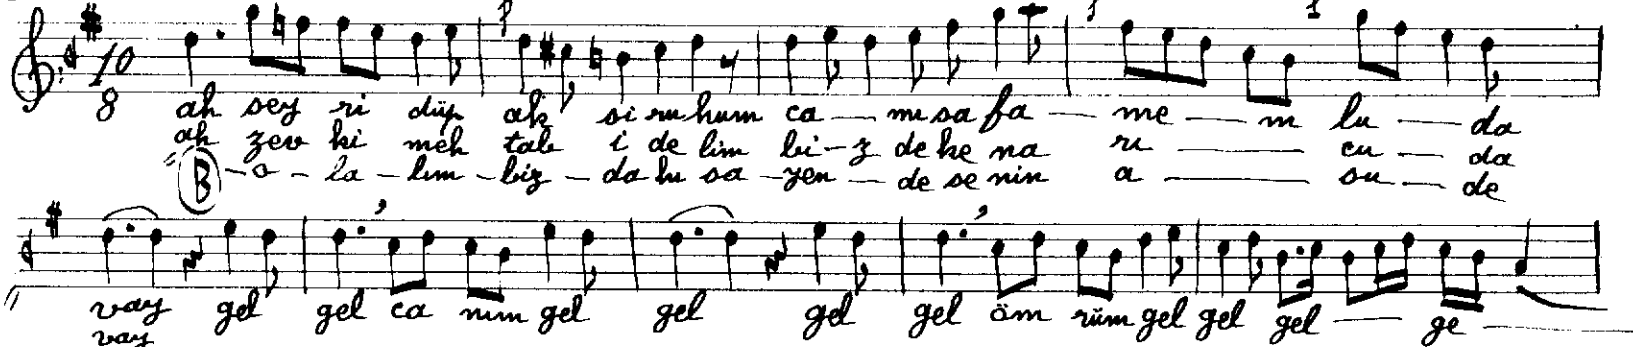 10
8
ah sey ri düp ak si ruhum ca — mi sa fa — me — m lu — da
ah zev ki meh tab i de lim bi-z de ke na ri — cu — da
B - o - la - lım - biz - da hu sa - yen - de se nin a — su — de
vay gel gel ca nım gel gel gel gel öm rüm gel gel gel — ge —
vay